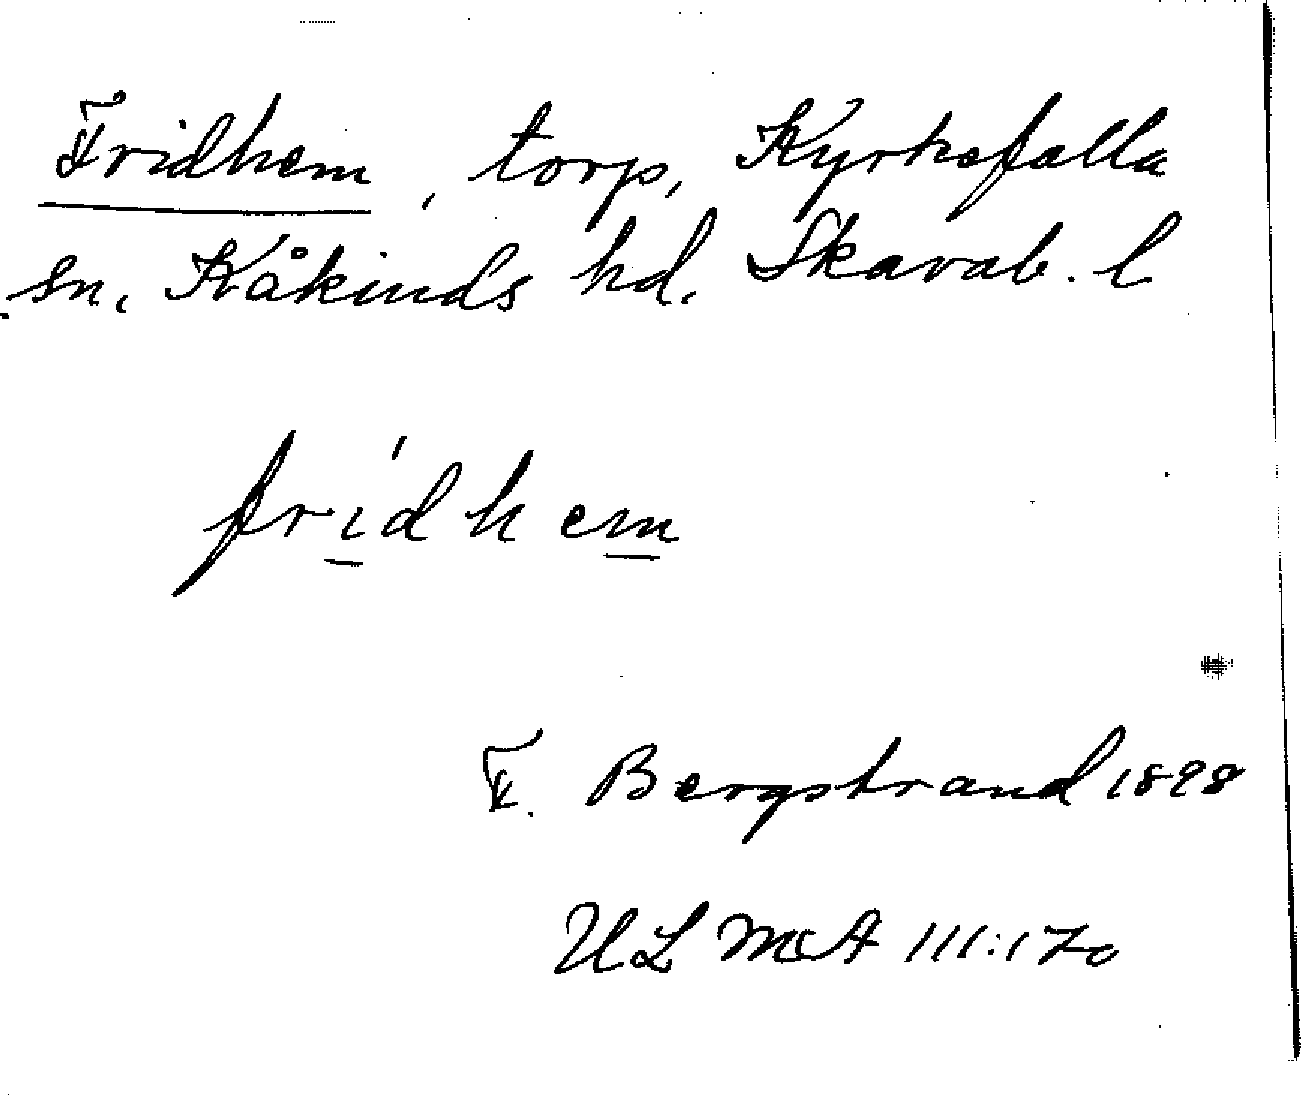 Fridhem, torp, Kyrkefalla
sn, Kåkinds hd. Skarab. l
fri'dhem
F. Bergstrand 1898
ULMA 111:170